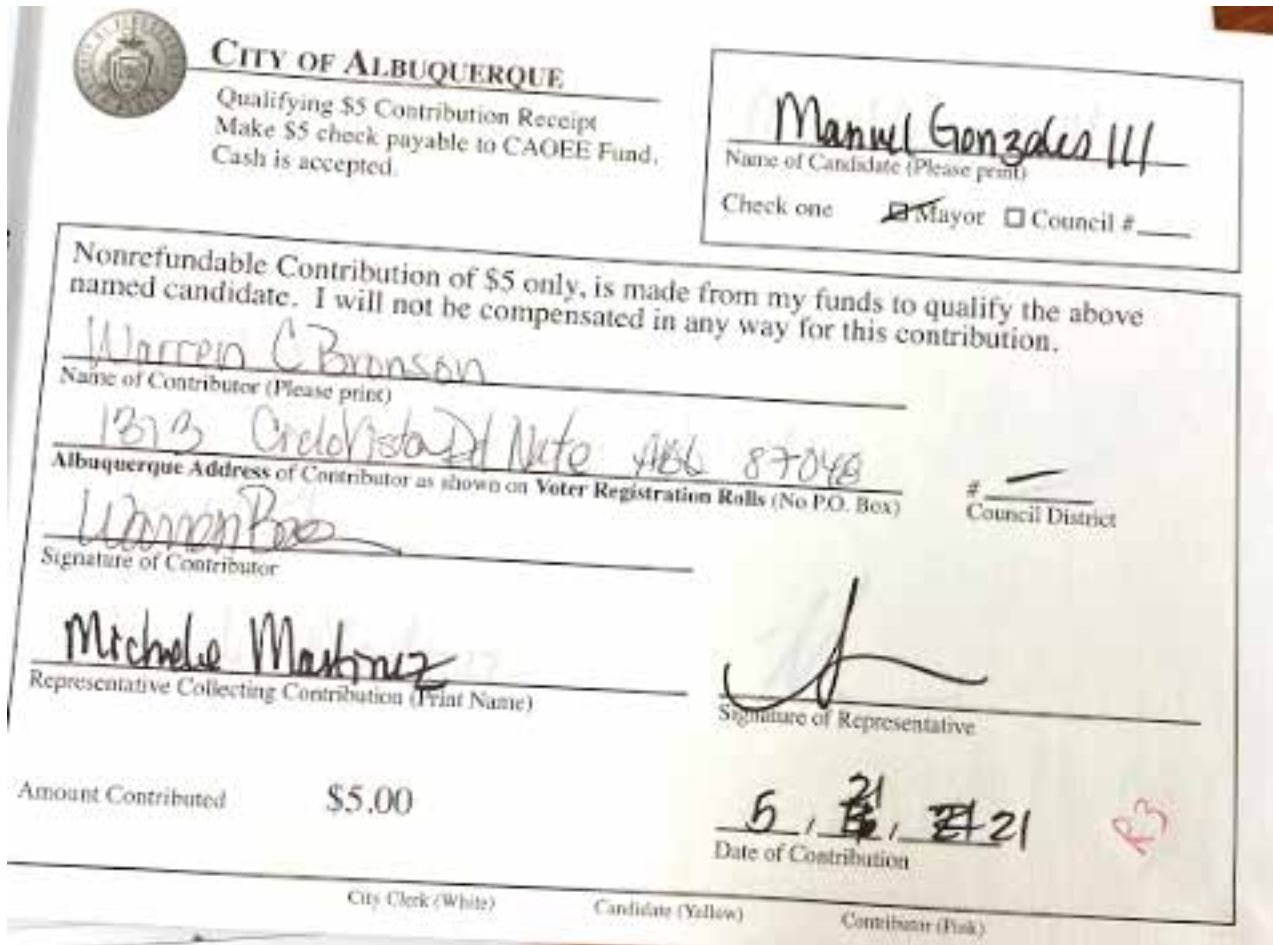 CITY OF ALBUQUERQUE
Qualifying $5 Contribution Receipt
Make $5 check payable to CAOEE Fund.
Cash is accepted.
Manuel Gonzales III
Name of Candidate (Please print)
Check one Mayor Council #
Nonrefundable Contribution of $5 only, is made from my funds to qualify the above
named candidate. I will not be compensated in any way for this contribution.
Warren C Bronson
Name of Contributor (Please print)
Vista ABQ 87048
Albuquerque Address of Contributor as shown on Voter Registration Rolls (No P.O. Box)
# —
Council District
Warren
Signature of Contributor
Michele Martinez
Representative Collecting Contribution (Print Name)
Signature of Representative
Amount Contributed $5.00
5, 21, 21
Date of Contribution
R3
City Clerk (White) Candidate (Yellow) Contributor (Pink)